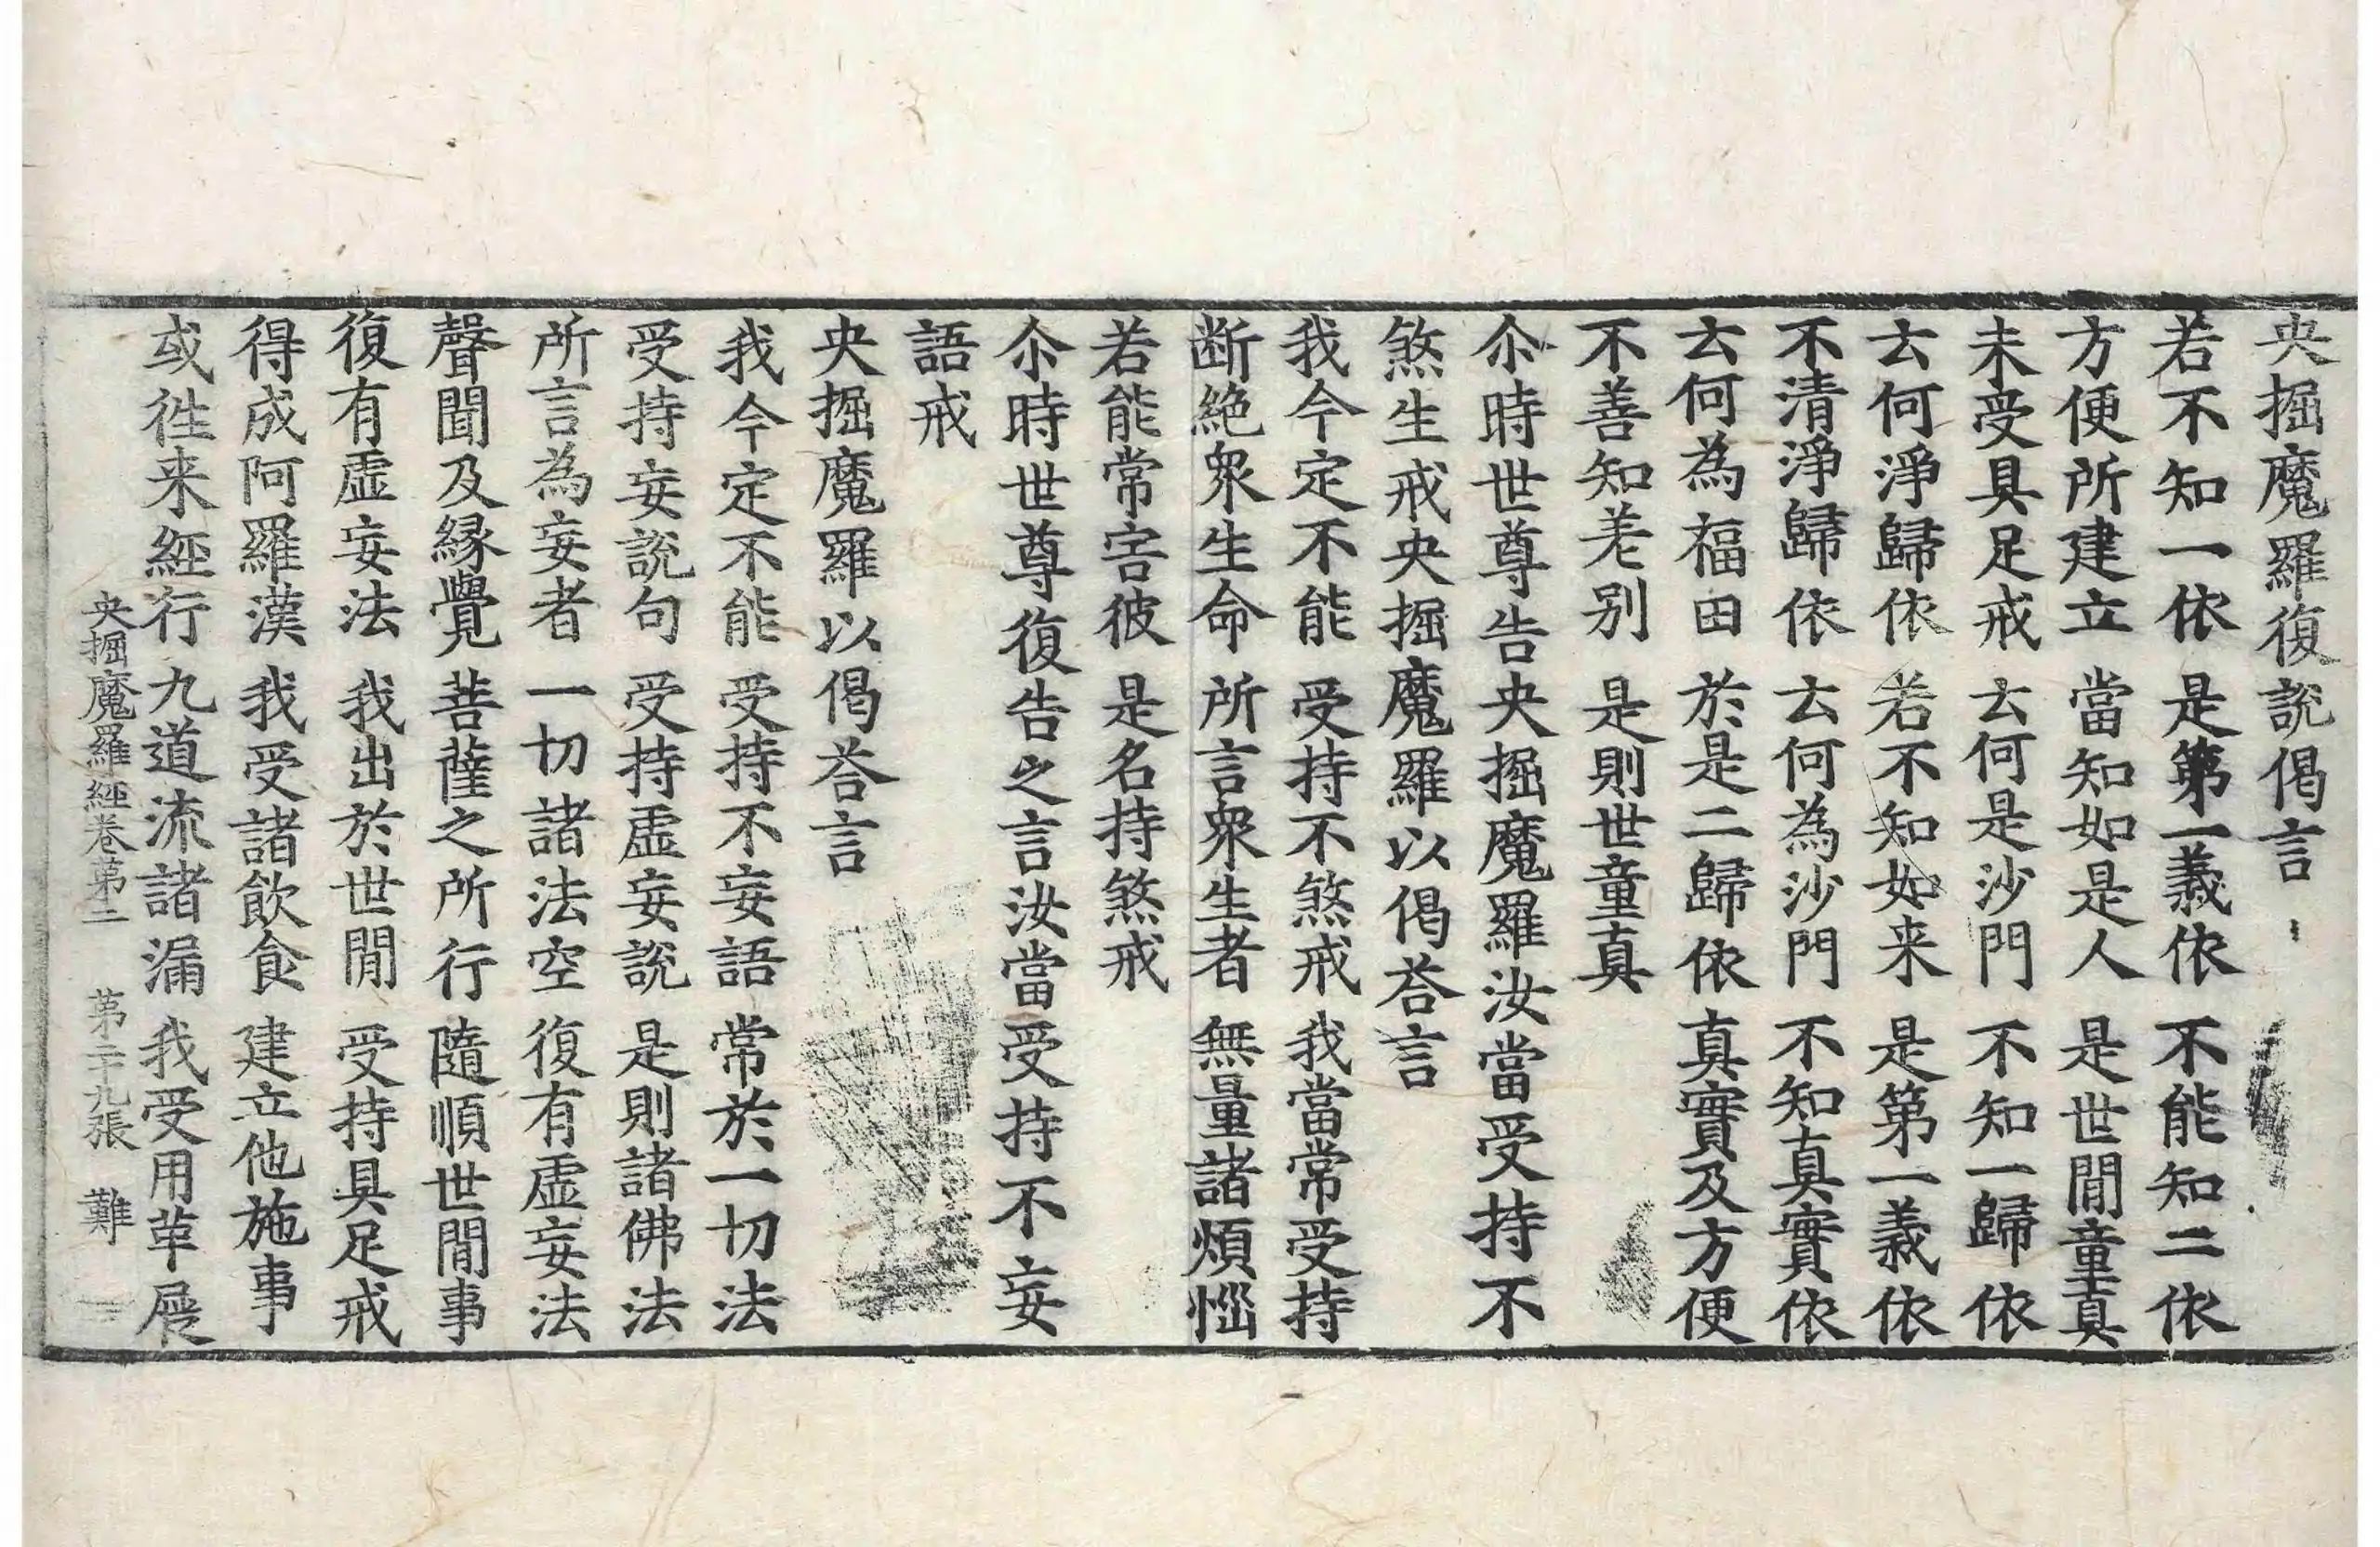 央掘魔羅復說偈言
若不知一依 是第一義依 不能知二依
方便所建立 當知如是人 是世間童真
未受具足戒 云何是沙門 不知一歸依
云何淨歸依 若不知如来 是第一義依
不清淨歸依 云何為沙門 不知真實依
云何為福田 於是二歸依 真實及方便
不善知差别 是則世童真
尒時世尊告央掘魔羅汝當受持不
煞生戒央掘魔羅以偈荅言
我今定不能 受持不煞戒 我當常受持
断絶衆生命 所言衆生者 無量諸煩惱
若能常害彼 是名持煞戒
尒時世尊復告之言汝當受持不妄
語戒
央掘魔羅以偈荅言
我今定不能 受持不妄語 常於一切法
受持妄說句 受持虛妄說 是則諸佛法
所言為妄者 一切諸法空 復有虛妄法
聲聞及縁覺 菩薩之所行 隨順世間事
復有虛妄法 我出於世間 受持具足戒
得成阿羅漢 我受諸飲食 建立他施事
或徃来經行 九道流諸漏 我受用革屣
央掘魔羅經卷第二 第二十九張 難